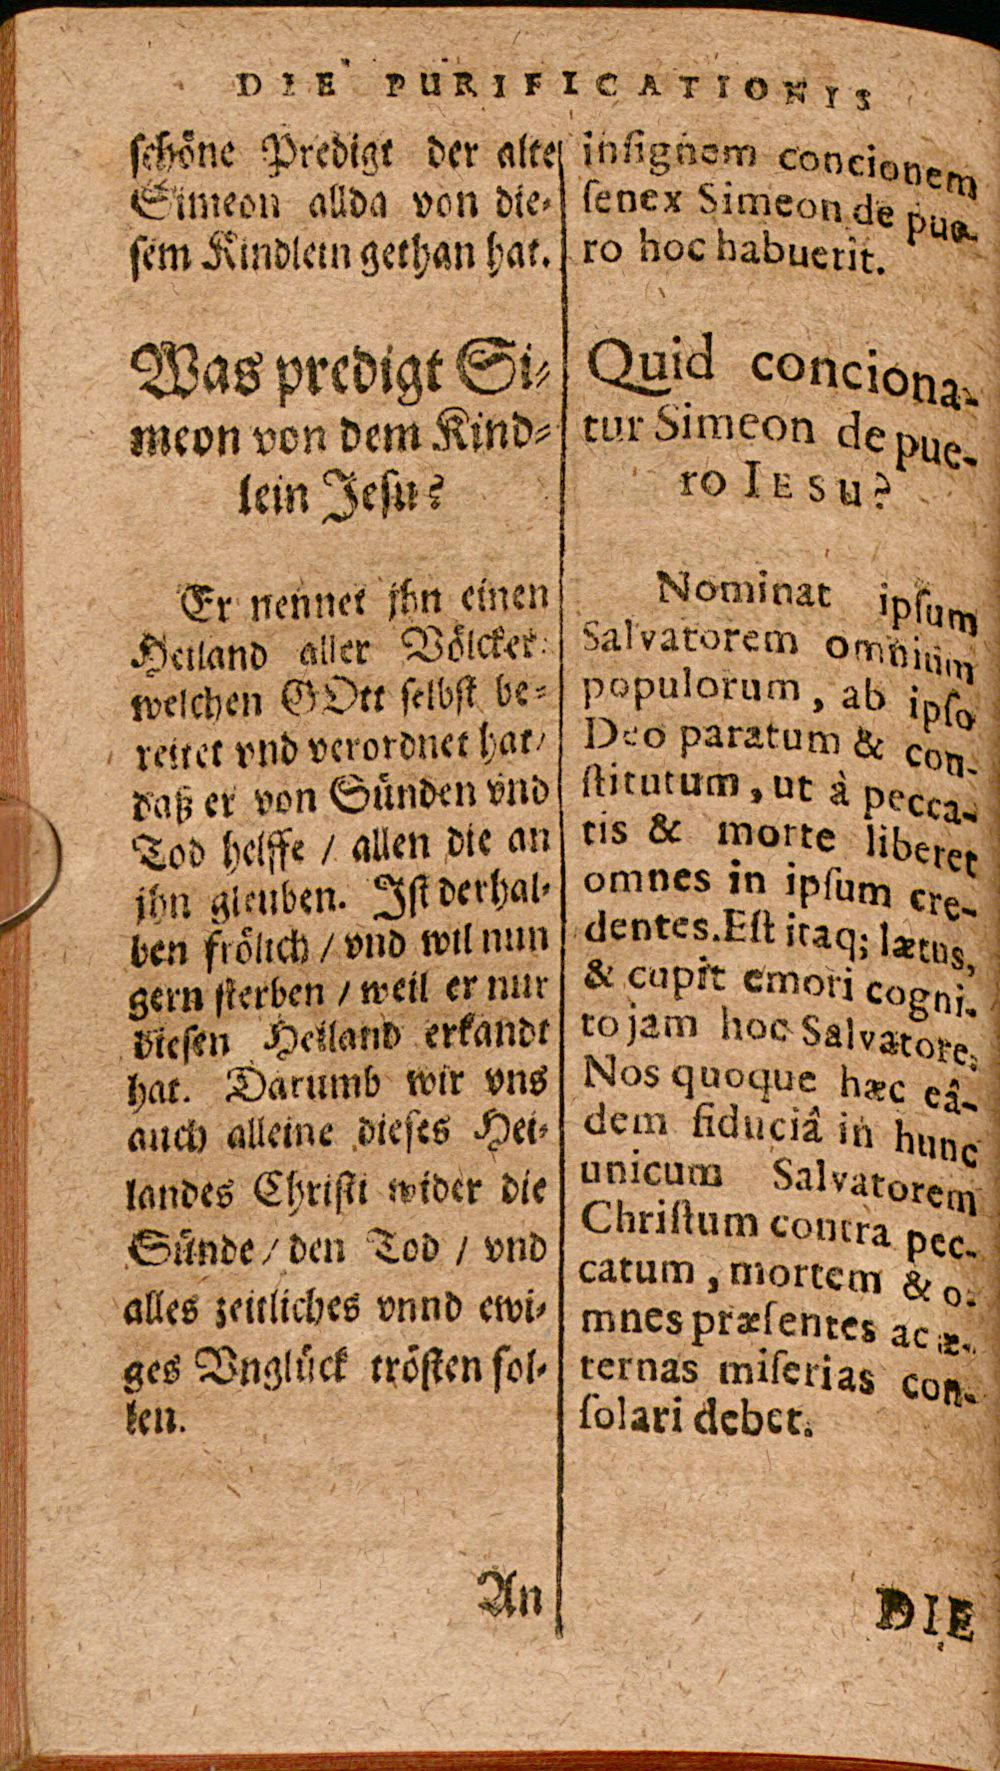 DIE PURIFICATIONIS
schöne Predigt der alte
Simeon allda von die⸗
sem Kindlein gethan hat.
Was predigt Si⸗
meon von dem Kind⸗
lein Jesu?
Er nennet jhn einen
Heiland aller Völcker
welchen GOtt selbst be⸗
reitet vnd verordnet hat/
daß er von Sünden vnd
Tod helffe / allen die an
jhn gleuben. Ist derhal⸗
ben frölich / vnd wil nun
gern sterben / weil er nur
diesen Heiland erkandt
hat. Darumb wir vns
auch alleine dieses Hei⸗
landes Christi wider die
Sünde / den Tod / vnd
alles zeitliches vnnd ewi⸗
ges Vnglück trösten sol⸗
len.
An
inſignem concionem
ſenex Simeon de pue-
ro hoc habuerit.
Quid conciona-
tur Simeon de pue-
ro IESU?
Nominat ipſum
Salvatorem omnium
populorum, ab ipſo
Deo paratum & con-
ſtitutum, ut à pecca-
tis & morte liberet
omnes in ipſum cre-
dentes. Eſt itaq; lætus,
& cupit emori cogni-
to jam hoc Salvatore.
Nos quoque hæc eâ-
dem fiduciâ in hunc
unicum Salvatorem
Chriſtum contra pec-
catum, mortem & o-
mnes præſentes ac æ-
ternas miſerias con-
ſolari debet.
DIE